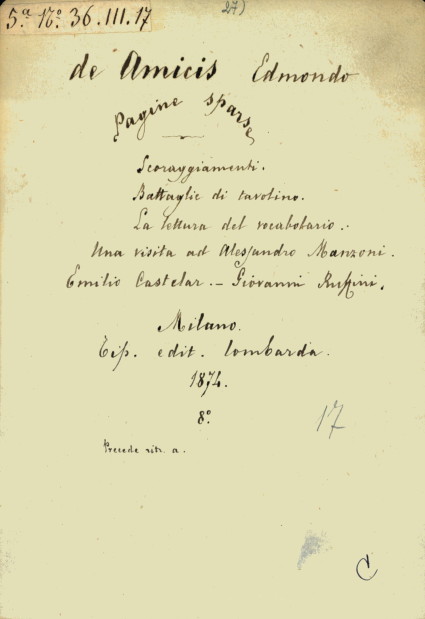 5.ª N.º 36.III.17
27)
de Amicis Edmondo
Pagine sparse
Scoraggiamenti.
Battaglie di tavolino.
La lettura del vocabolario.
Una visita ad Alessandro Manzoni.
Emilio Castelar. – Giovanni Ruffini.
Milano.
Tip. edit. lombarda.
1874.
8.º
17
Precede ritr. a.
C